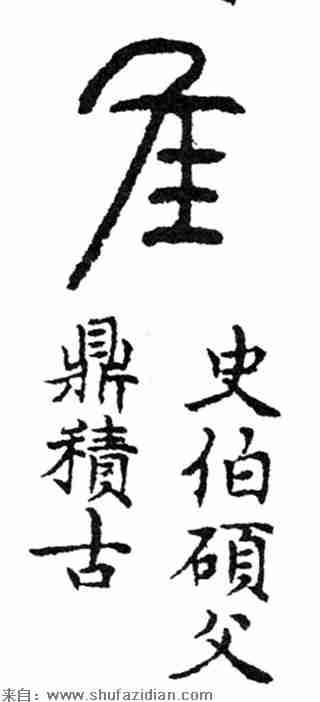 史伯碩父
鼎積古
来自：www.shufazidian.com